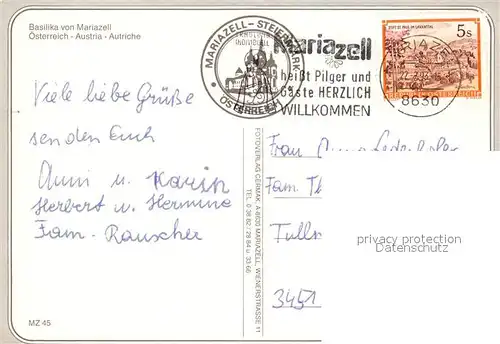 Basilika von Mariazell
Österreich - Austria - Autriche
MARIAZELL - STEIERMARK
ÖSTERREICH
Mariazell
heißt Pilger und
Gäste HERZLICH
WILLKOMMEN
5s
MARIAZELL
8630
Viele liebe Grüße
senden Euch
Anni u. Karin
Herbert u. Hermine
Fam. Rauscher
FOTOVERLAG CERMAK, A-8630 MARIAZELL, WIENERSTRASSE 11
Frau
Fam.
Tulln
3451
privacy protection
Datenschutz
MZ 45